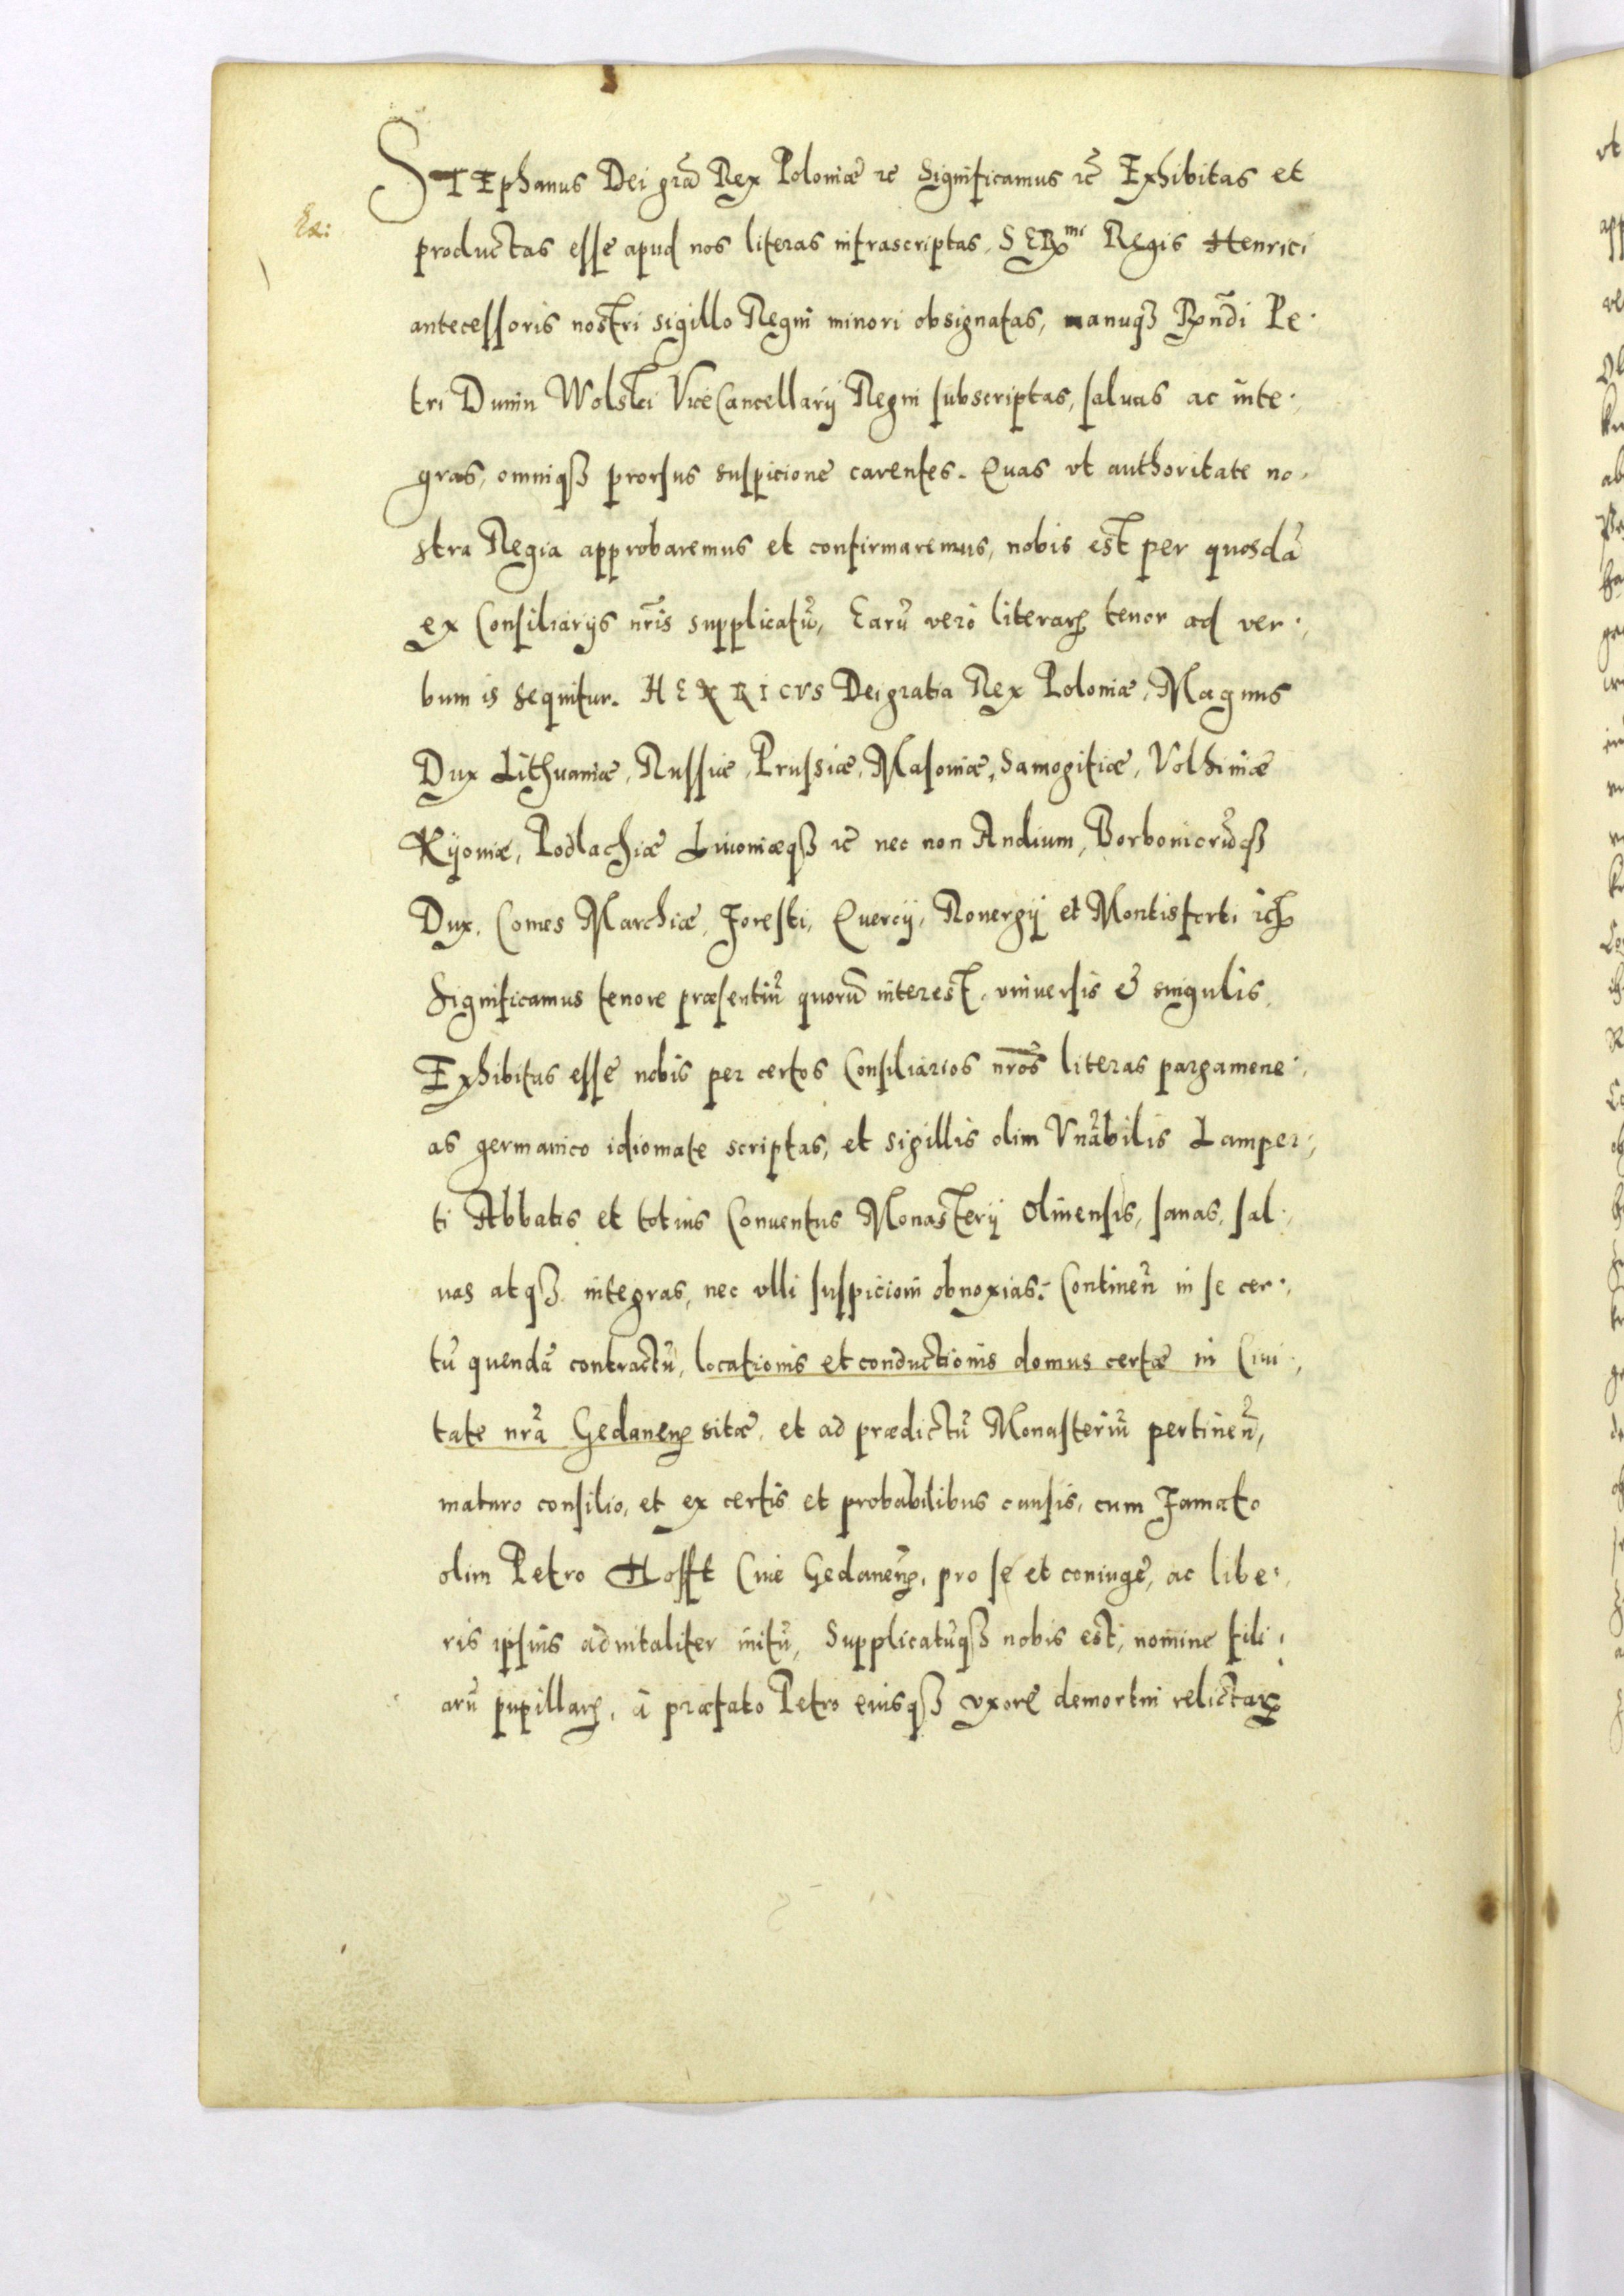 STEphanus Dei gr̃a Rex Poloniæ ꝛc Significamus ꝛc̃ Exhibitas et
productas esse apud nos literas infrascriptas, SERmi Regis Henrici
antecessoris nostri sigillo Regni minori obsignatas, manuqꝫ Rndi Pe-
tri Dunin Wolski ViceCancellarij Regni subscriptas, saluas ac inte-
gras, omniqꝫ prorsus suspicione carentes. Quas vt authoritate no-
stra Regia approbaremus et confirmaremus, nobis est per quosdã
ex Consiliarijs nr̃is supplicatũ, Earũ vero literarꝝ tenor ad ver-
bum is sequitur. HENRICVS Dei gratia Rex Poloniæ, Magnus
Dux Lithuaniæ, Russiæ, Prussiæ, Masoniæ, Samogitiæ, Volhiniæ
Kijoniæ, Podlachiæ Liuoniæqꝫ ꝛc nec non Andium, Borboniorũqꝫ
Dux, Comes Marchiæ, Foresti, Quercij, Rouergij et Montisforti
Significamus tenore præsentiũ quorũ interest, vniuersis & singulis,
Exhibitas esse nobis per certos Consiliarios nr̃os literas pargamene-
as germanico idiomate scriptas, et sigillis olim Vnãbilis Lamper-
ti Abbatis et totius Conuentus Monasterij Oliuensis, sanas, sal-
uas atqꝫ integras, nec vlli suspicioni obnoxias: Continen̄ in se cer-
tũ quendã contractũ, locationis et conductionis domus certæ in Ciui-
tate nrã Gedanenꝭ sitæ, et ad prædictũ Monasteriũ pertinen̄,
maturo consilio, et ex certis et probabilibus causis, cum Famato
olim Petro Hofft Ciue Gedanenꝭ, pro se et coniuge, ac libe-
ris ipsius aduitaliter initũ, Supplicatũqꝫ nobis est, nomine fili-
arũ pupillarꝝ, à præfato Petro eiusqꝫ vxore demortui relictarꝝ